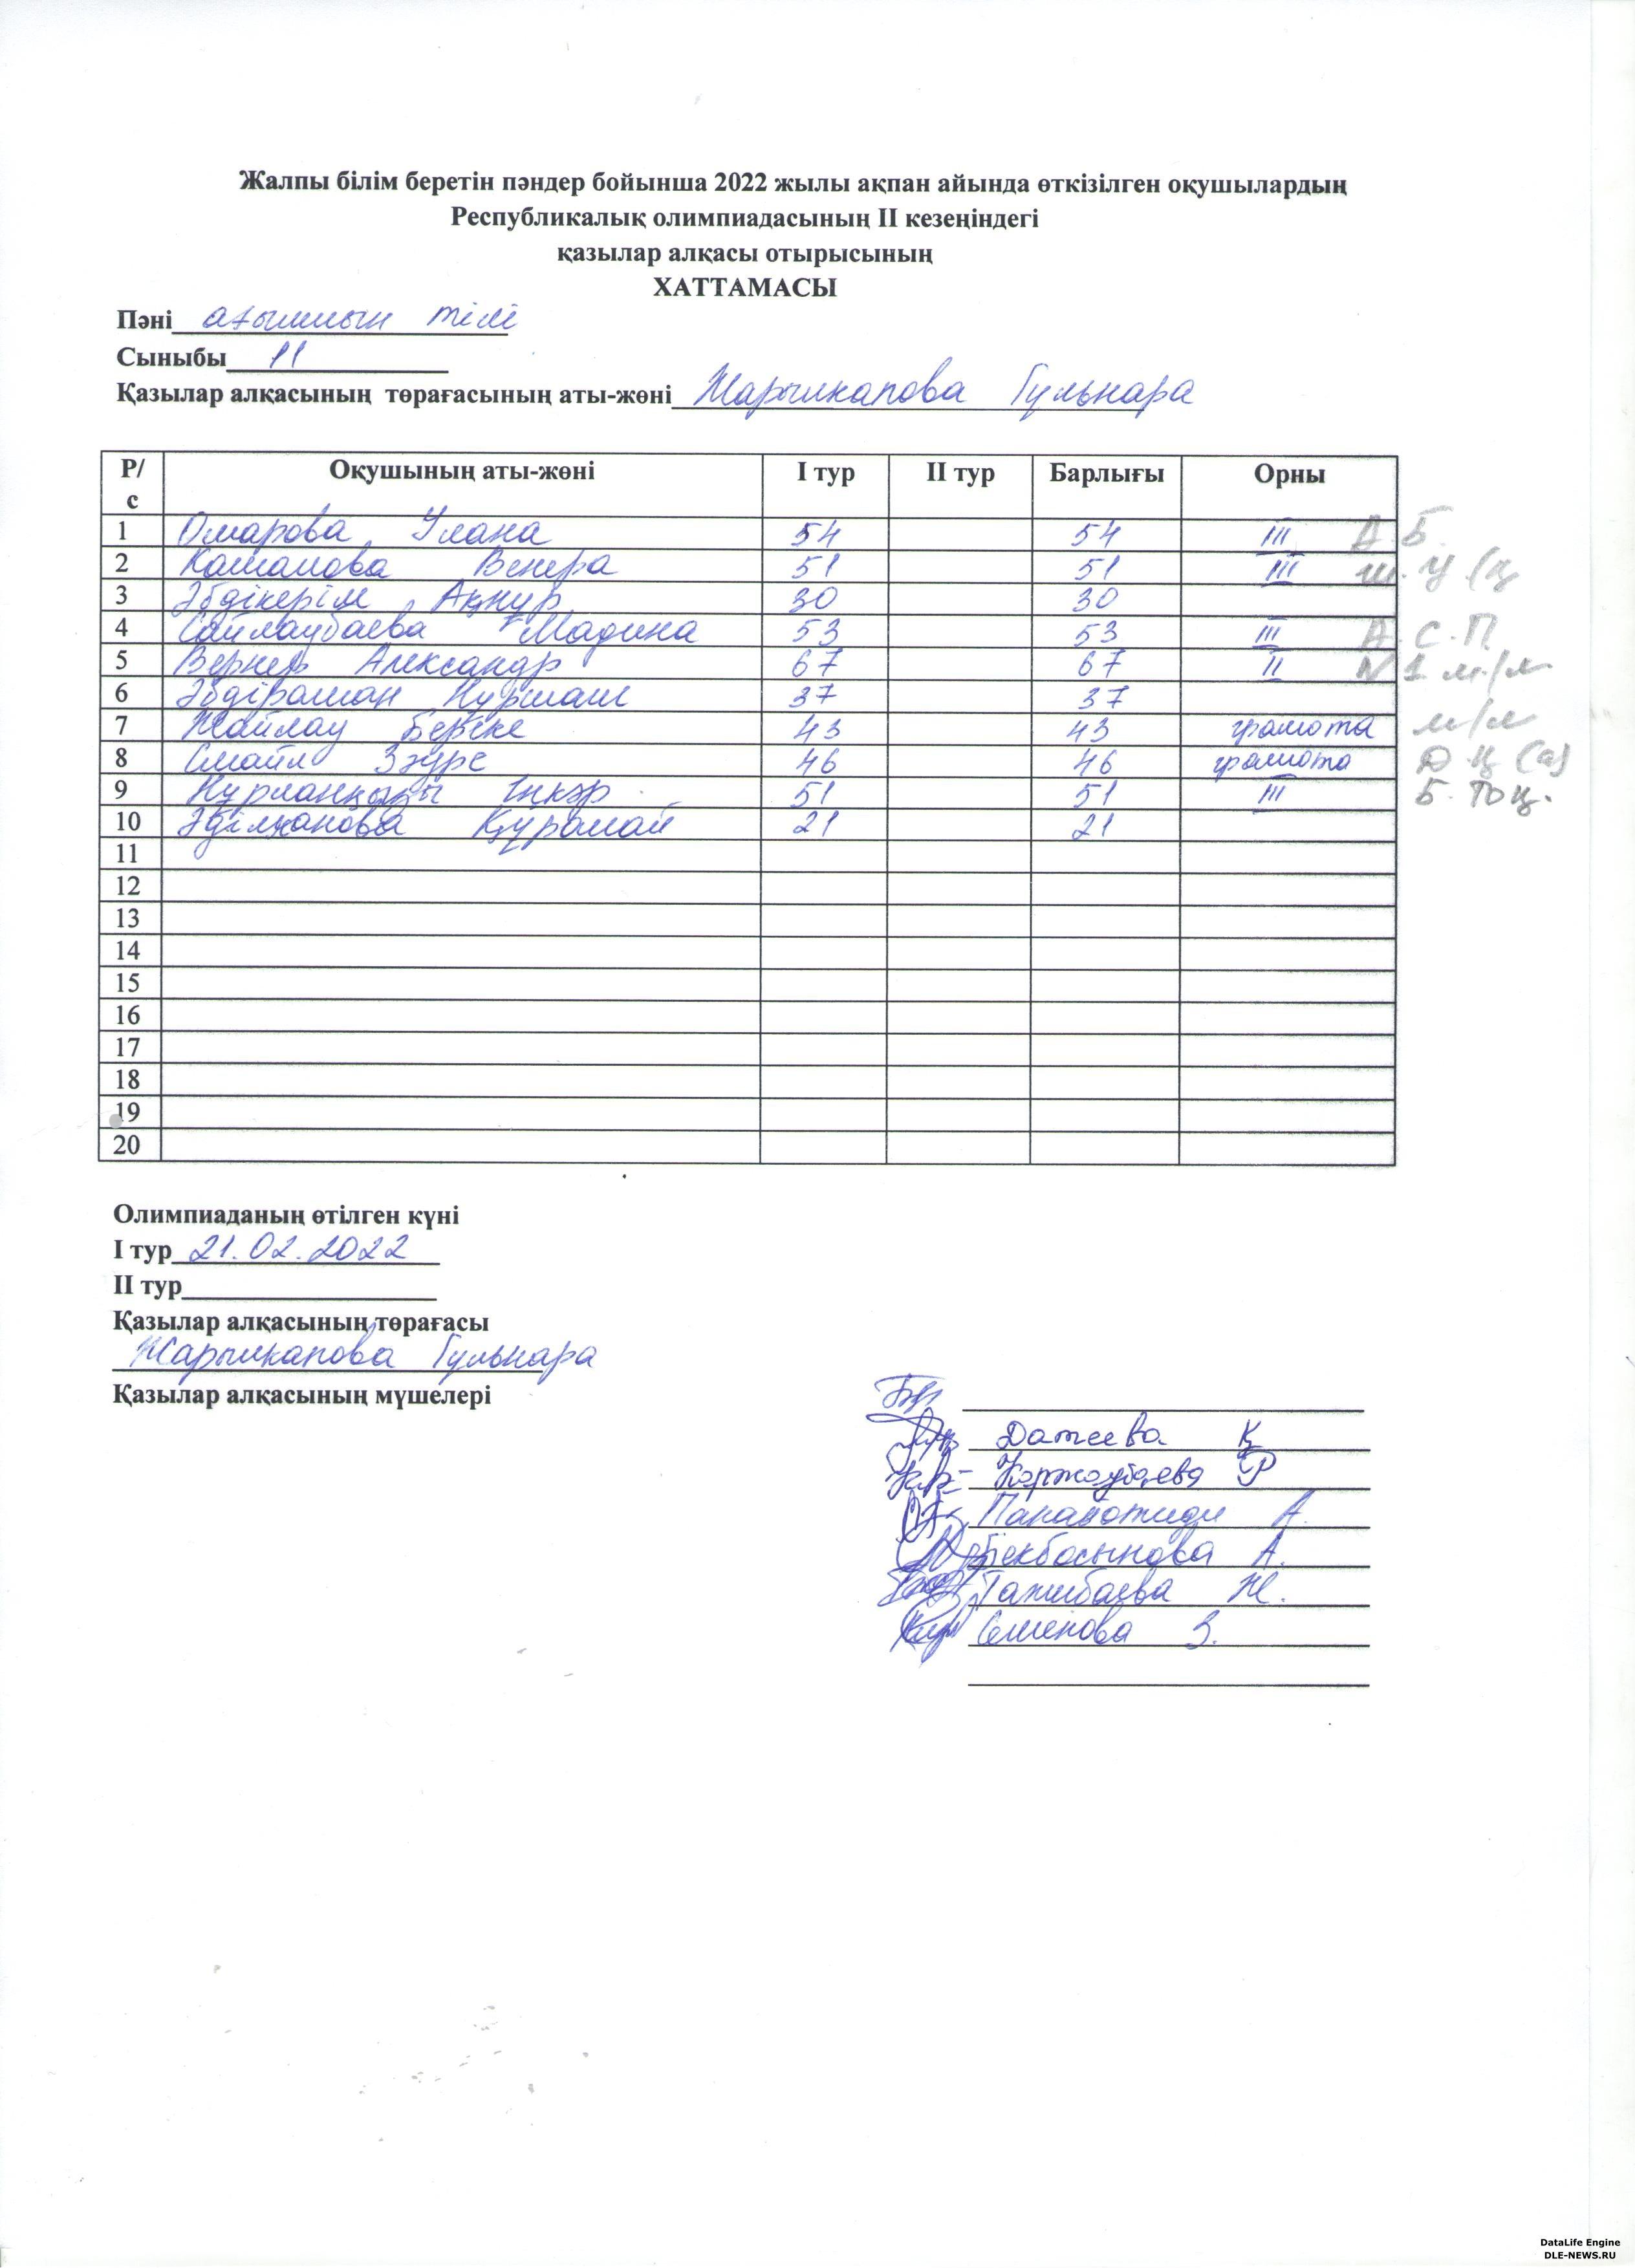 Жалпы білім беретін пәндер бойынша 2022 жылы ақпан айында өткізілген оқушылардың
Республикалық олимпиадасының II кезеңіндегі
қазылар алқасы отырысының
ХАТТАМАСЫ
Пәні ағылшын тілі
Сыныбы 11
Қазылар алқасының төрағасының аты-жөні Жарылкапова Гульнара
Р/с Оқушының аты-жөні I тур II тур Барлығы Орны
1 Омарова Улана 54 54 III А.Б.
2 Венера 51 51 III Ш.У (ц
3 Әбдікерім Ақнұр 30 30
4 Сайлаубаева Мадина 53 53 III А.С.П
5 Вернер Александр 67 67 II №1 м/л
6 Әбдірашан 37 37
7 Жайлау Береке 43 43 грамота м/л
8 Смайл Зәуре 46 46 грамота Д.Ц (а)
9 Нұрланқызы Іңкәр 51 51 III Б.
10 Әділханова Құралай 21 21
11
12
13
14
15
16
17
18
19
20
Олимпиаданың өтілген күні
I тур 21.02.2022
II тур
Қазылар алқасының төрағасы
Жарылкапова Гульнара
Қазылар алқасының мүшелері
Датеева Қ
Қоржаубаева Р
Панаиотиди А.
Бекбосынова А.
Тажибаева Ж.
З.
DataLife Engine
DLE-NEWS.RU